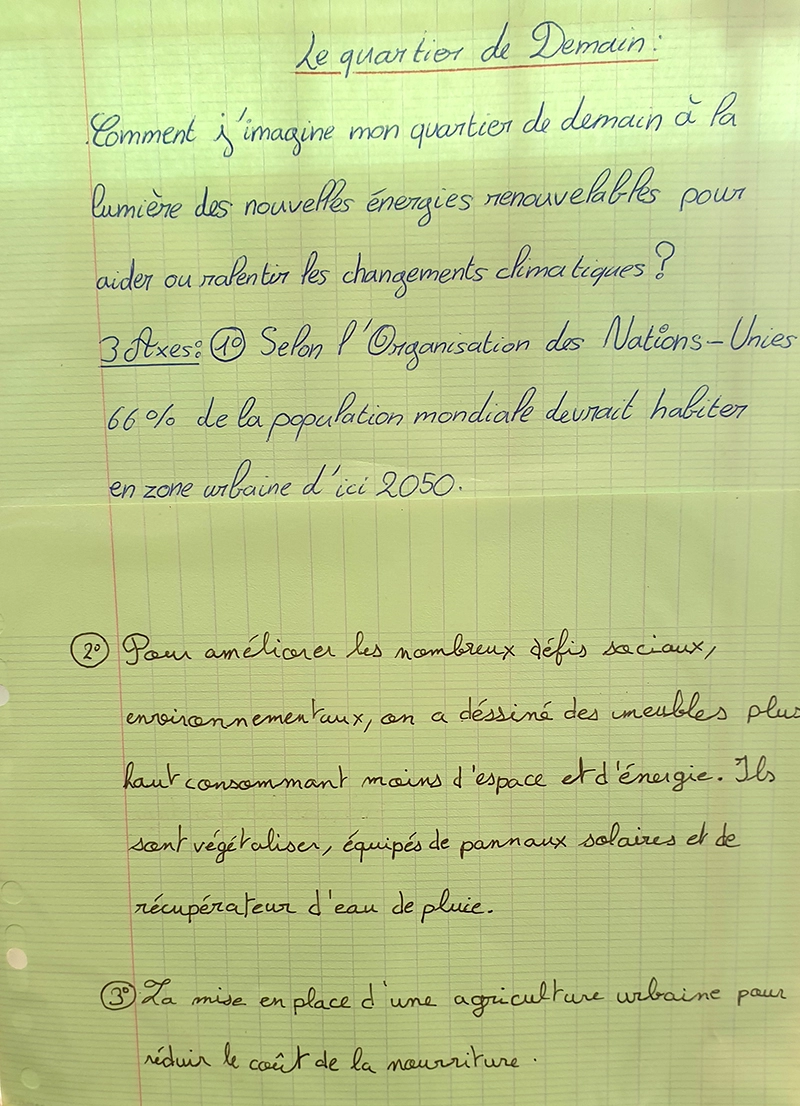 Le quartier de Demain :
Comment j'imagine mon quartier de demain à la
lumière des nouvelles énergies renouvelables pour
aider ou ralentir les changements climatiques ?
3 Axes : 1° Selon l'Organisation des Nations-Unies
66 % de la population mondiale devrait habiter
en zone urbaine d'ici 2050.
2° Pour améliorer les nombreux défis sociaux,
environnementaux, on a déssiné des imeubles plus
haut consommant moins d'espace et d'énergie. Ils
sont végétaliser, équipés de pannaux solaires et de
récupérateur d'eau de pluie.
3° La mise en place d'une agriculture urbaine pour
réduir le coût de la nourriture.